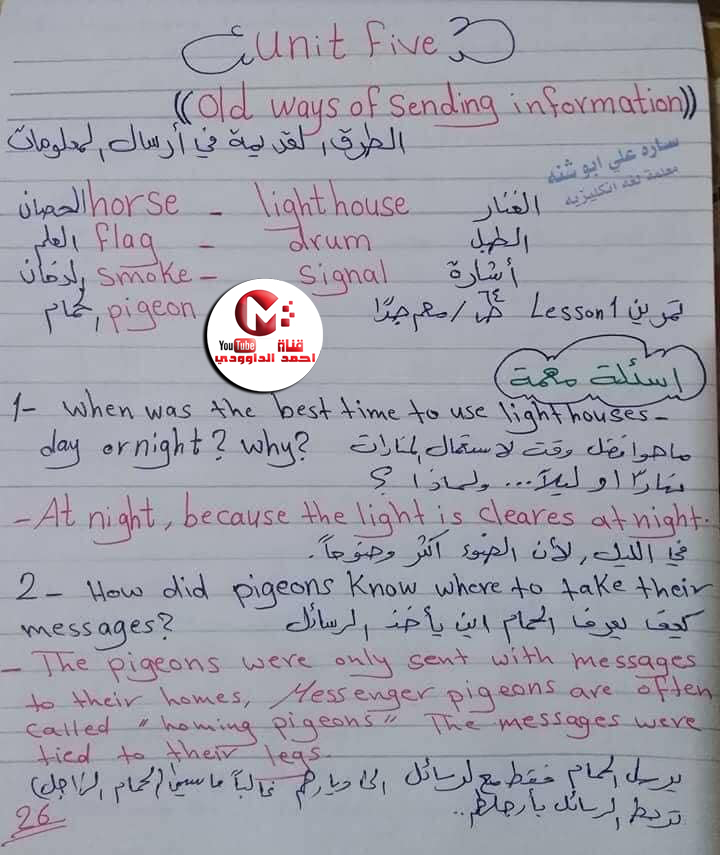 Unit five
((old ways of sending information))
الطرق القديمة في أرسال المعلومات
ساره علي ابو شنه
معلمة لغه انكليزيه
الحصان horse - lighthouse الفنار
العلم flag - drum الطبل
الدخان smoke - signal أشارة
الحمام pigeon
تمرين Lesson 1 ص ٦٤ / مهم جدًا
M
YouTube قناة
احمد الداوودي
اسئلة مهمة
1- When was the best time to use lighthouses-
day or night? why? ماهو افضل وقت لاستعمال المنارات
نهارًا او ليلاً... ولماذا ؟
- At night, because the light is cleares at night.
في الليل, لأن الضوء اكثر وضوحاً.
2- How did pigeons know where to take their
messages? كيف يعرف الحمام اين يأخذ الرسائل
- The pigeons were only sent with messages
to their homes, Messenger pigeons are often
called "homing pigeons" The messages were
tied to their legs.
يرسل الحمام فقط مع الرسائل الى ديارهم غالباً ما سيما (الحمام الزاجل)
تربط الرسائل بأرجلهم..
26